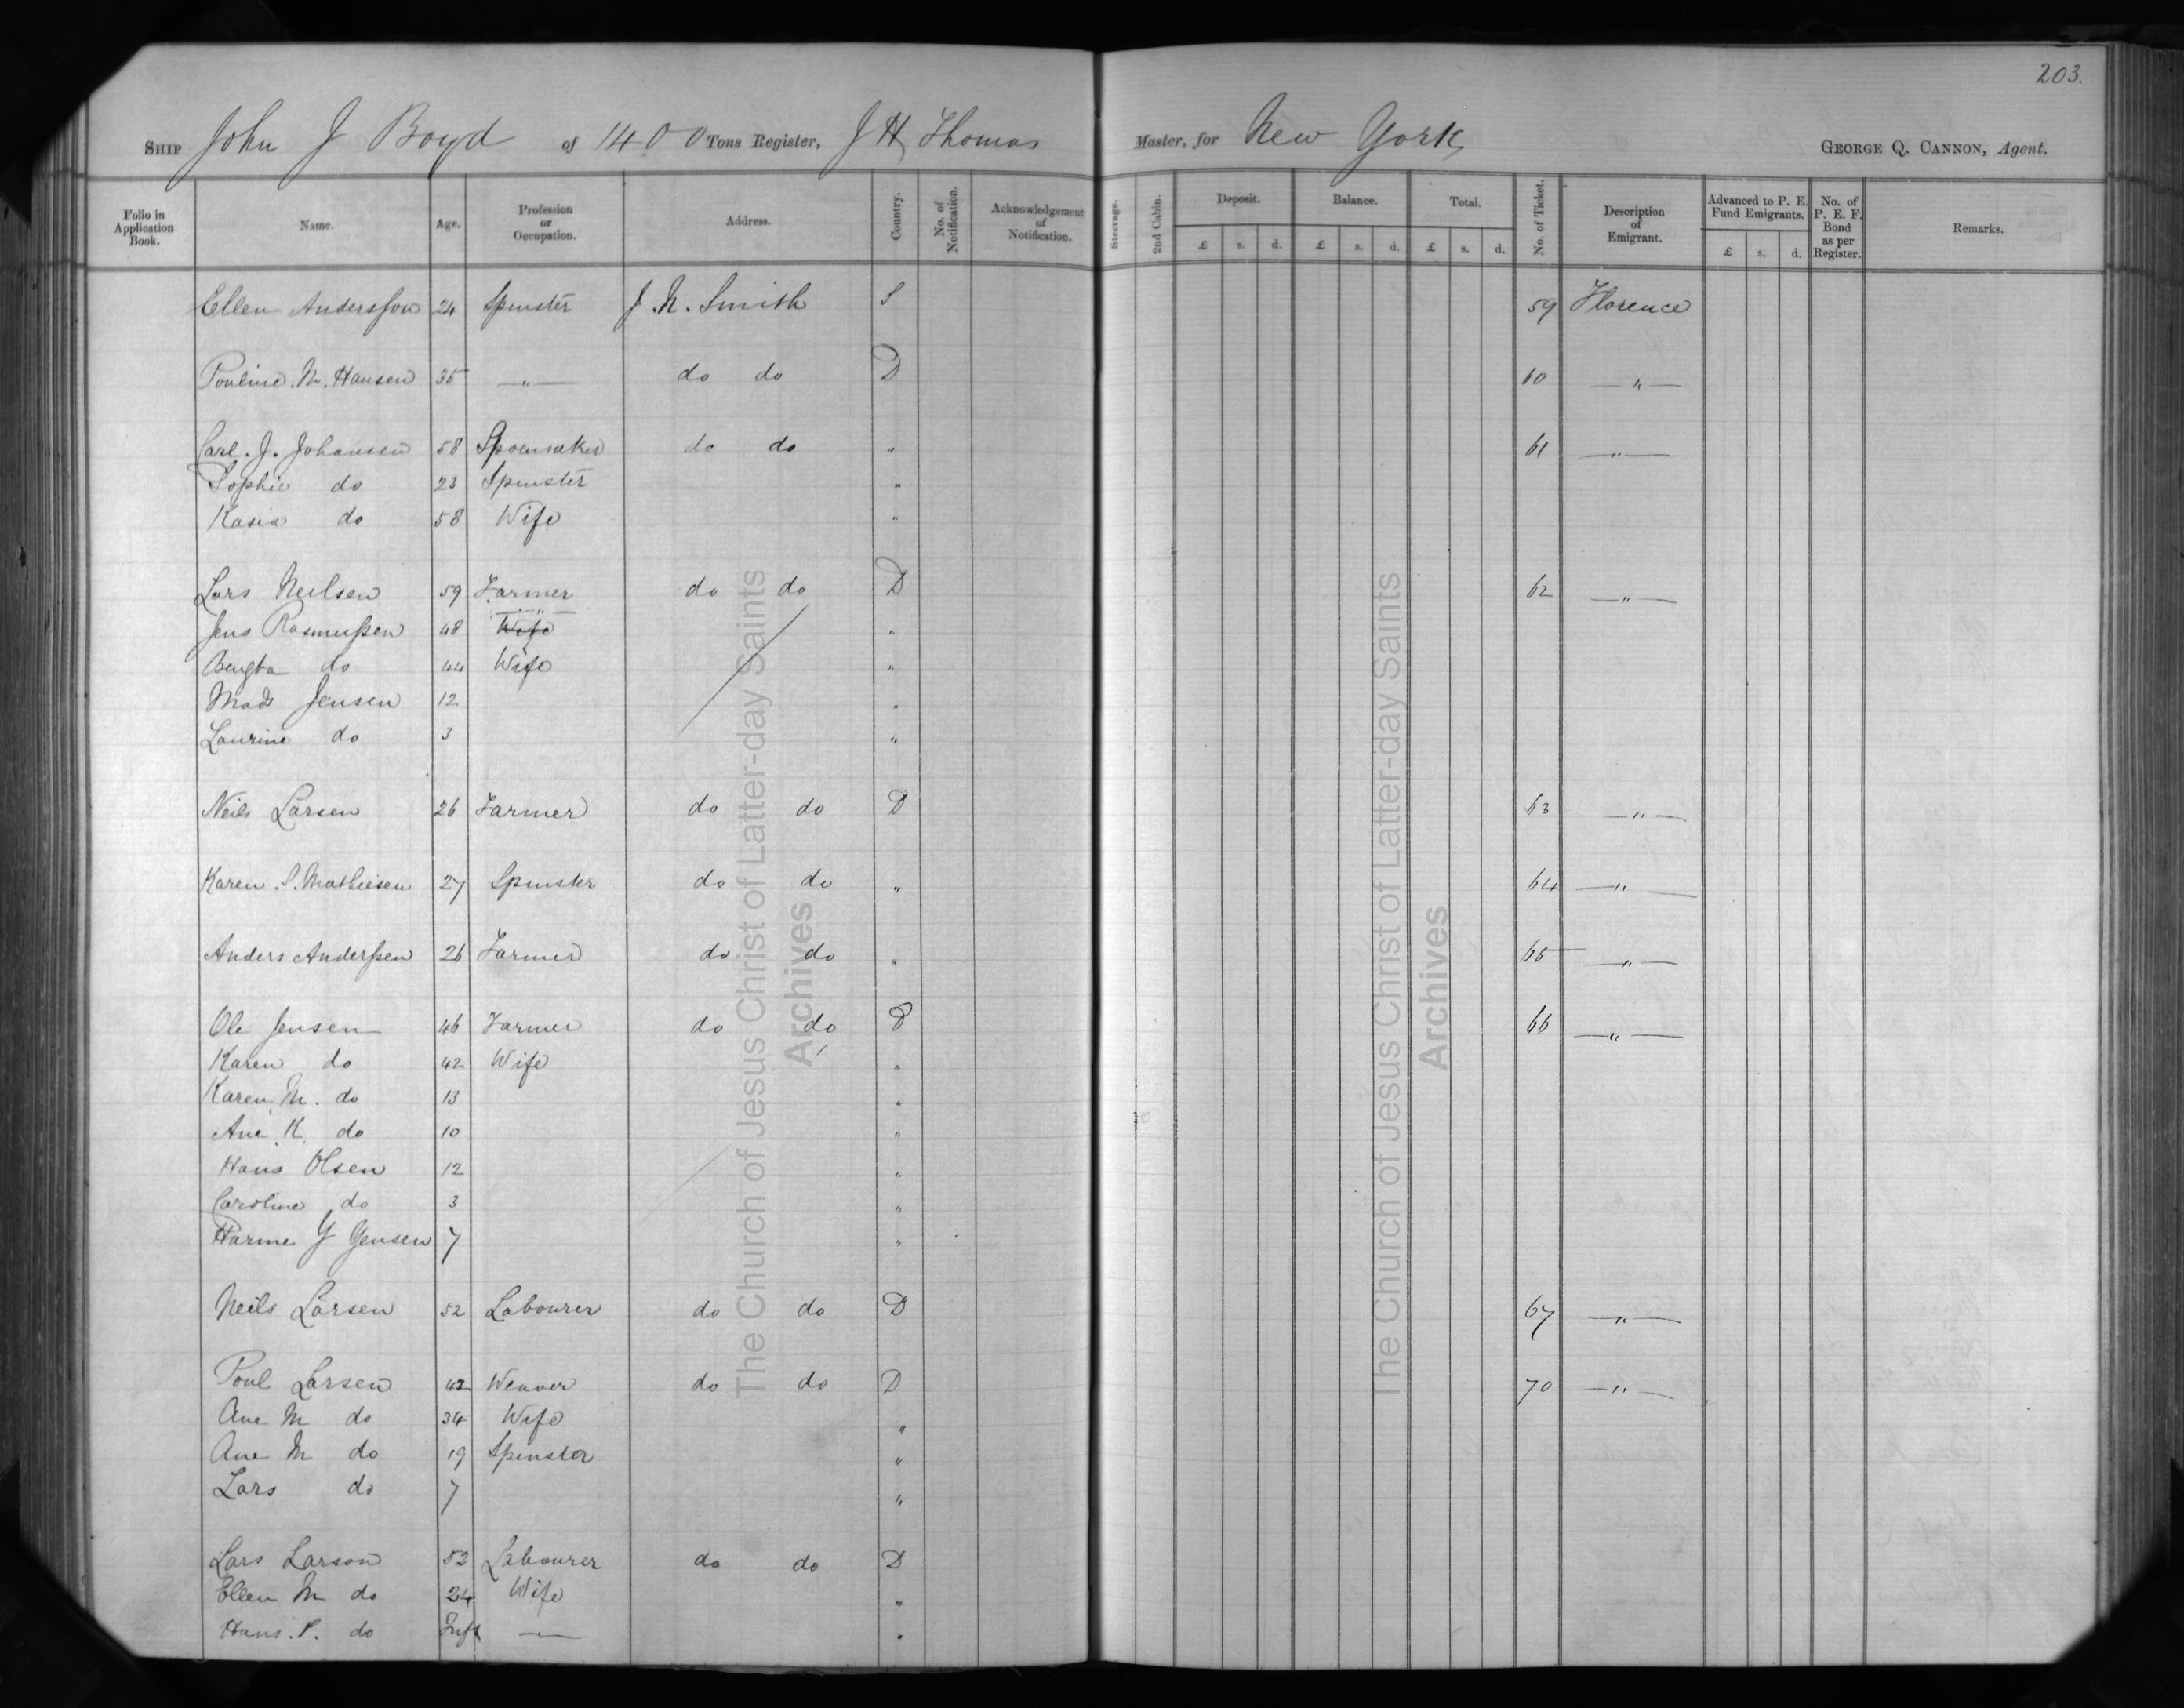 203.
Ship John J Boyd of 1400 Tons Register, J H Thomas Master, for New York George Q. Cannon, Agent.
Folio in Application Book. Name. Age. Profession or Occupation. Address. Country. No. of Notification. Acknowledgement of Notification. Steerage. 2nd Cabin. Deposit. £ s. d. Balance. £ s. d. Total. £ s. d. No. of Ticket. Description of Emigrant. Advanced to P. E. Fund Emigrants. £ s. d. No. of P. E. F. Bond as per Register. Remarks.
Ellen Andersson 24 Spinster J. N. Smith S 59 Florence
Pouline. M. Hansen 35 —"— do do D 60 —"—
Carl. J. Johansen 58 Shoemaker do do " 61 —"—
Sophie do 23 Spinster "
Kasia do 58 Wife "
Lars Neilsen 59 Farmer do do D 62 —"—
Jens Rasmussen 48 —"— Wife "
Bengta do 44 Wife "
Mads Jensen 12 "
Laurine do 3 "
Neils Larsen 26 Farmer do do D 63 —"—
Karen. S. Mathiesen 27 Spinster do do " 64 —"—
Anders Anderssen 26 Farmer do do " 65 —"—
Ole Jensen 46 Farmer do do D 66 —"—
Karen do 42 Wife "
Karen M. do 13 "
Ane K. do 10 "
Hans Olsen 12 "
Caroline do 3 "
Y Gensen 7 "
Neils Larsen 52 Labourer do do D 67 —"—
Poul Larsen 42 Weaver do do D 70 —"—
Ane M do 34 Wife "
Ane M do 19 Spinster "
Lars do 7 "
Lars Larson 53 Labourer do do D
Ellen M do 24 Wife "
Hans. P. do Inft — "
The Church of Jesus Christ of Latter-day Saints
Archives
The Church of Jesus Christ of Latter-day Saints
Archives